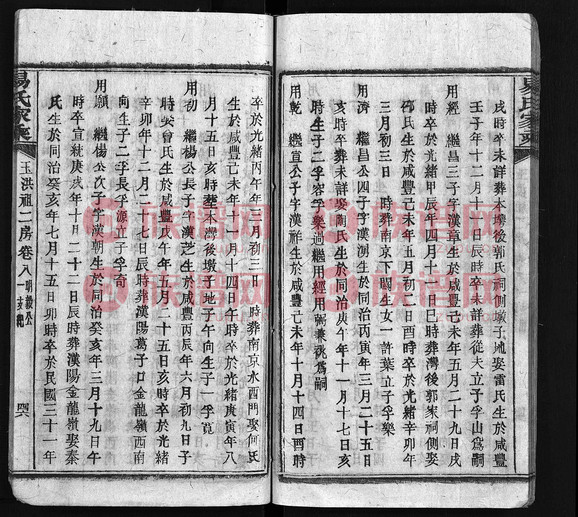 戌時卒未詳葬本塆後郭氏祠側墩子地娶雷氏生於咸豐
壬子年十二月二十一日辰時卒未詳葬從夫立子孚山爲嗣
用經 繼昌三子字漢章生於咸豐己未年五月二十九日戌
時卒於光緒甲辰年四月十一日巳時葬灣後郭家祠側娶
氏生於咸豐己未年二月初二日酉時卒於光緒辛卯年
三月初三日 時葬南京下關生女一許葉立子孚樂
用濟 繼昌公四子字漢洲生於同治丙寅年三月二十五日
亥時卒葬未詳娶陶氏生於同治庚午年十一月十七日亥
時生子二孚容孚樂過繼用經用萬兼祧爲嗣
用乾 繼宣公子字漢祥生於咸豐己未年十月十四日酉時
卒於光緒丙午年三月初三日 時葬南京水西門娶何氏
生於咸豐己未年十一月十四日午時卒於光緒庚寅年八
月十五日亥時葬本灣後墩子地子午向生子一孚寬
用初 繼楊公長子字漢芝生於咸豐丙辰年六月初九日子
時娶曾氏生於咸豐戊午年五月二十五日亥時卒於光緒
辛卯年十二月二十七日辰時葬漢陽葛子口金龍嶺西南
向生子二孚長孚源立子孚奇
用願 繼楊公次子字漢朝生於同治癸亥年三月十九日午
時卒宣統庚戌年十月二十二日辰時葬漢陽金龍嶺娶秦
氏生於同治癸亥年七月十五日卯時卒於民國三十一年
易氏家乘
玉洪祖二房卷八
易氏家乘
族譜网
族譜网